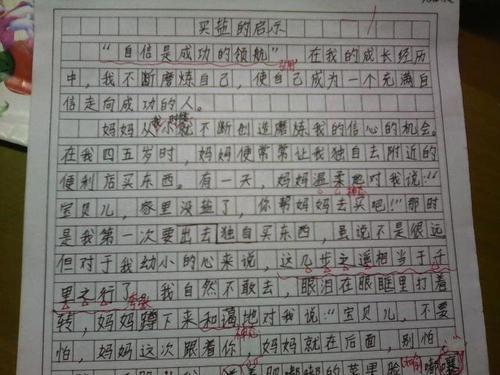 买盐的启示
“自信是成功的领航”，在我的成长经历
中，我不断磨炼自己，使自己成为一个充满自
信走向成功的人。
妈妈从小就不断创造磨炼我的信心的机会。
在我四五岁时，妈妈便常常让我独自去附近的
便利店买东西。有一天，妈妈温柔地对我说：“
宝贝儿，家里没盐了，你帮妈妈去买吧！”那时
是我第一次要出去独自买东西，虽说不是很远
但对于我幼小的心来说，这几步之遥相当于千
里之行了。我自然不敢去，眼泪在眼眶里打着
转，妈妈蹲下来和蔼地对我说：“宝贝儿，不要
怕，妈妈这次跟着你，妈妈就在后面，别怕
肥嘟嘟的苹果脸 嘟囔